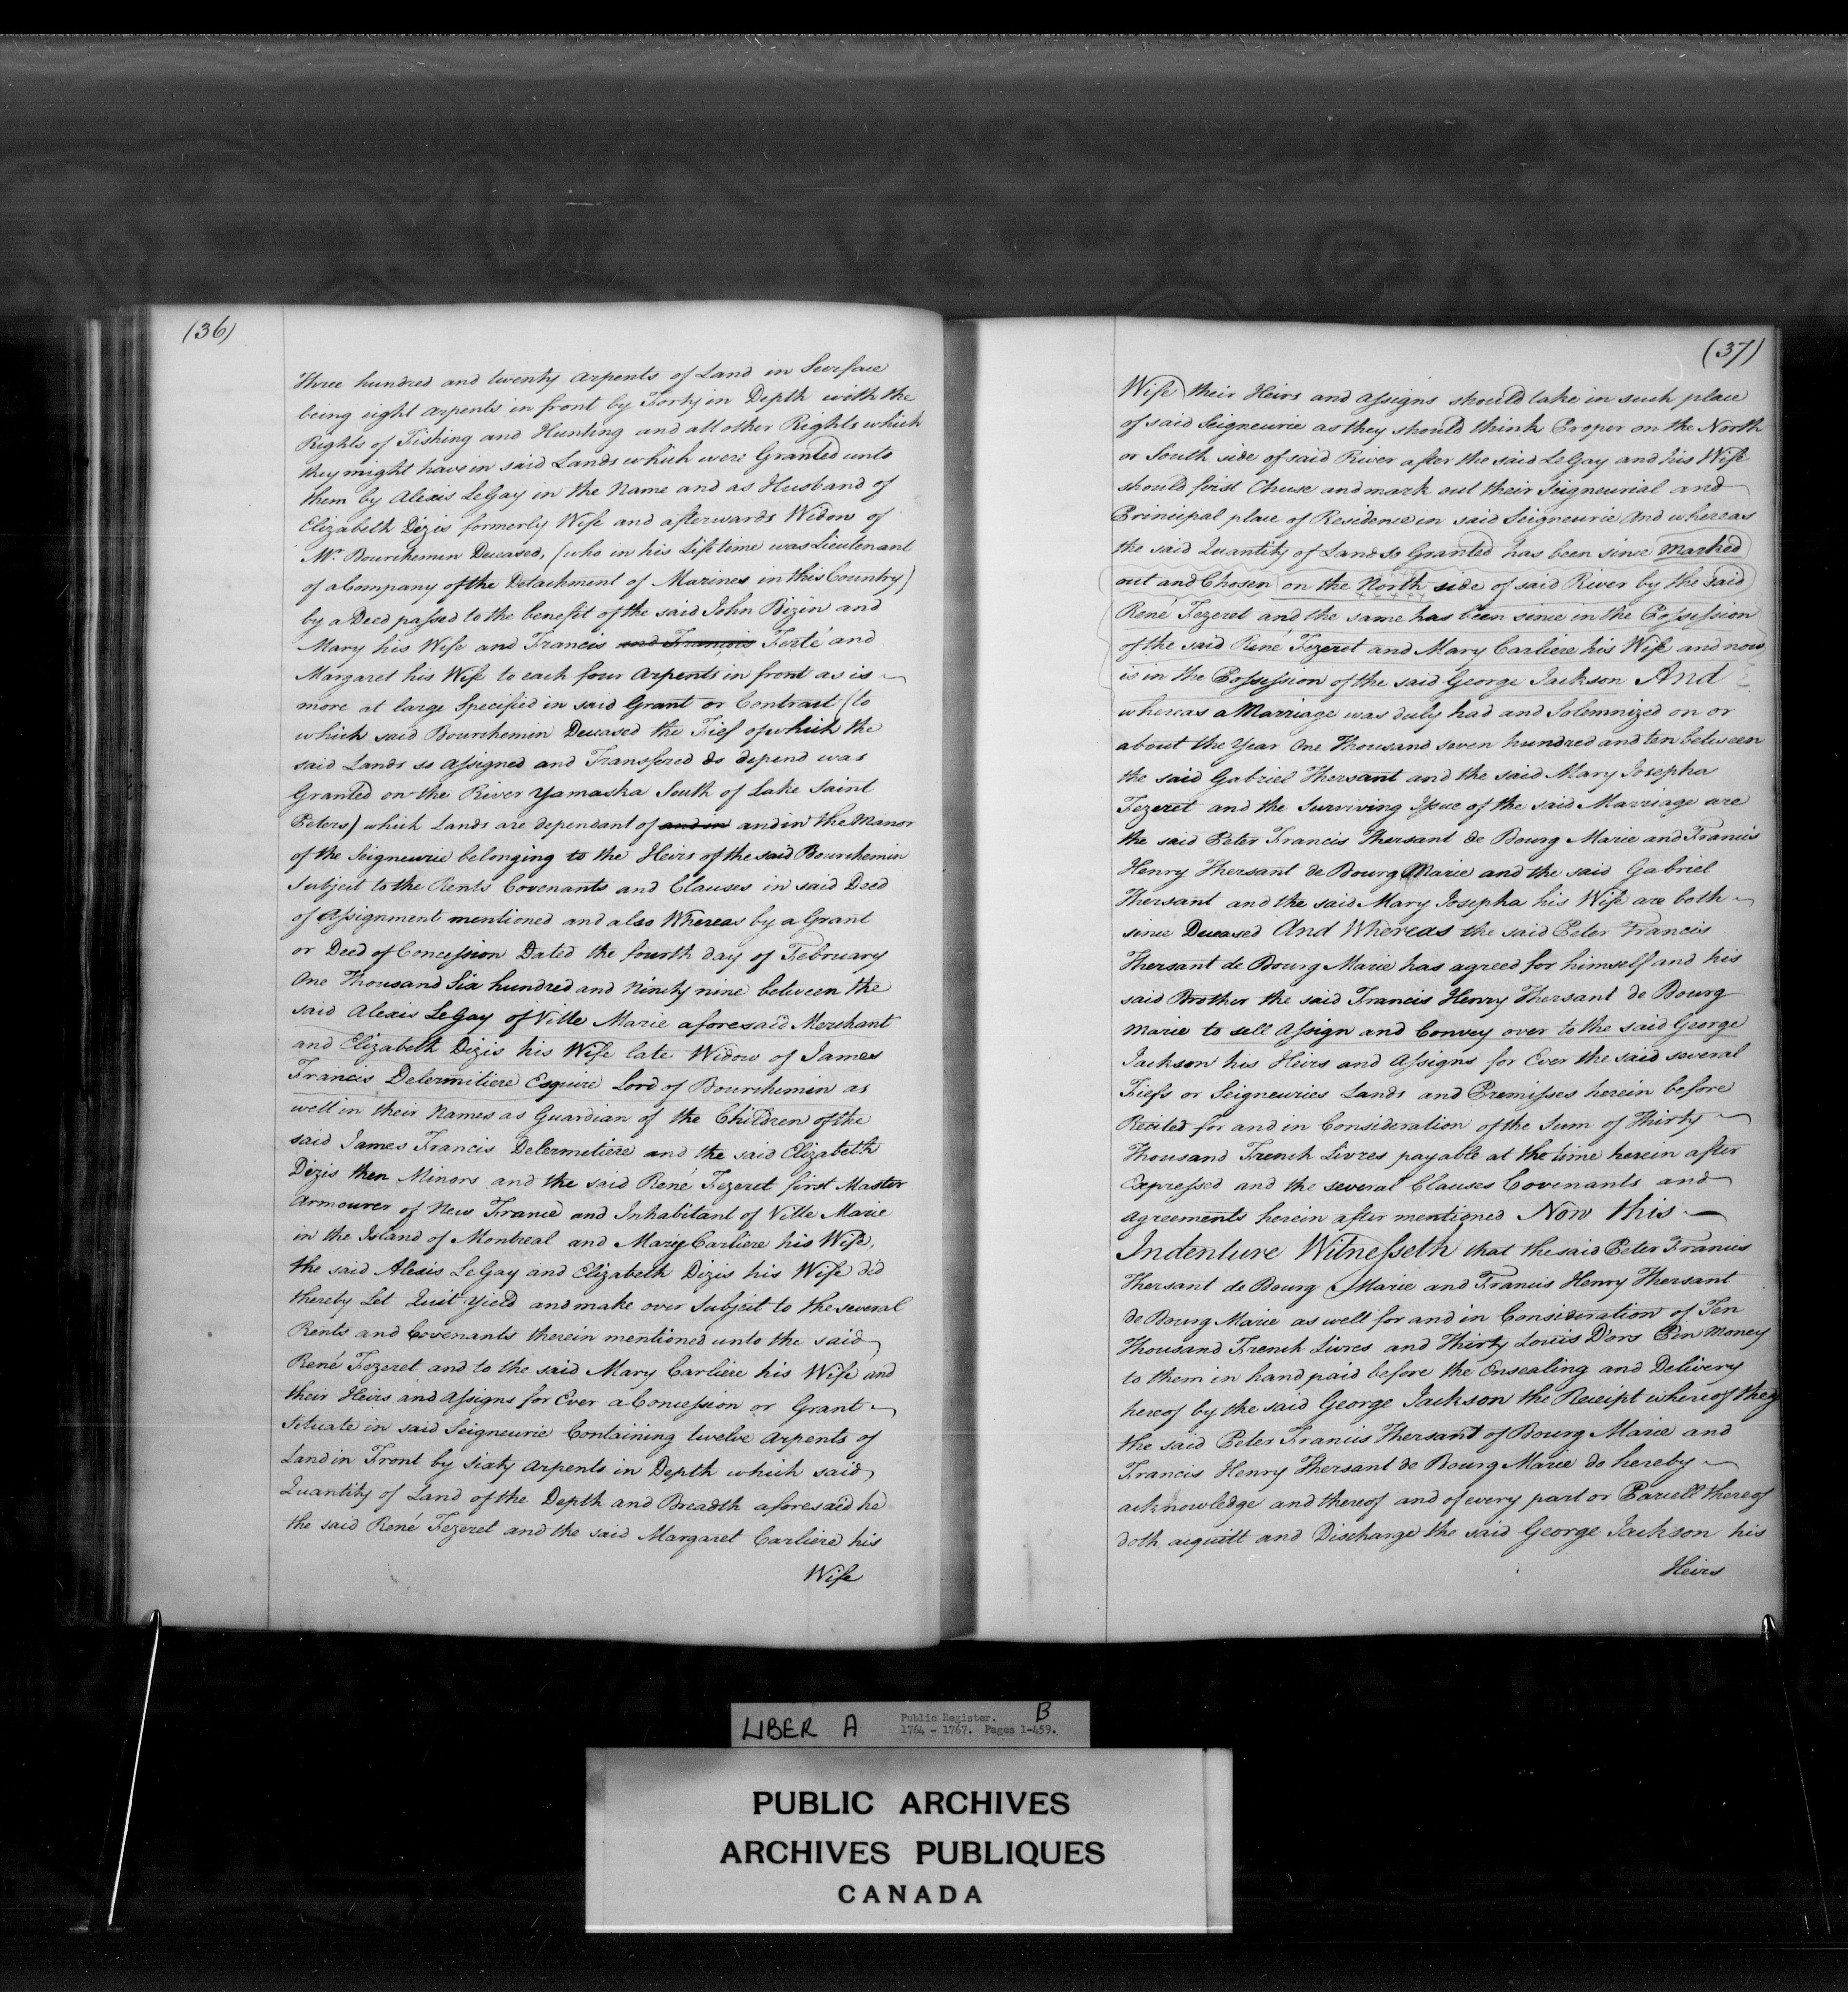 (36)
Three hundred and twenty Arpents of Land in Surface
being eight Arpents in front by Forty in Depth with the
Rights of Fishing and Hunting and all other Rights which
they might have in said Lands which were Granted unto
them by Alexis LeGay in the Name and as Husband of
Elizabeth Dizis formerly Wife and afterwards Widow of
Mr. Bourchemin Deceased, (who in his Life time was Lieutenant
of a Company of the Detachment of Marines in this Country)
by a Deed passed to the benefit of the said John Bizin and
Mary his Wife and Francis and Francois Ferté and
Margaret his Wife to each four Arpents in front as is
more at large Specified in said Grant or Contract (to
which said Bourchemin Deceased the Fief of which the
said Lands so Assigned and Transfered do depend was
Granted on the River Yamaska South of Lake Saint
Peters) which Lands are dependant of and in and in the Manor
of the Seigneurie belonging to the Heirs of the said Bourchemin
Subject to the Rents Covenants and Clauses in said Deed
of Assignment mentioned and also Whereas by a Grant
or Deed of Concession Dated the fourth day of February
One Thousand Six hundred and Ninety nine between the
said Alexis LeGay of Ville Marie aforesaid Merchant
and Elizabeth Dizis his Wife late Widow of James
Francis Delermitiere Esquire Lord of Bourchemin as
well in their Names as Guardian of the Children of the
said James Francis Delermitiere and the said Elizabeth
Dizis then Minors and the said René Fezeret first Master
Armourer of New France and Inhabitant of Ville Marie
in the Island of Montreal and Mary Carliere his Wife,
the said Alexis LeGay and Elizabeth Dizis his Wife did
thereby Let Quit Yield and make over Subject to the several
Rents and Covenants therein mentioned unto the said
René Fezeret and to the said Mary Carliere his Wife and
their Heirs and Assigns for Ever a Concession or Grant
Situate in said Seigneurie Containing twelve Arpents of
Land in Front by Sixty Arpents in Depth which said
Quantity of Land of the Depth and Breadth aforesaid he
the said René Fezeret and the said Margaret Carliere his
Wife
(37)
Wife their Heirs and Assigns should take in such place
of said Seigneurie as they should think Proper on the North
or South side of said River after the said LeGay and his Wife
should first Chuse and mark out their Seigneurial and
Principal place of Residence in said Seigneurie And whereas
the said Quantity of Land so Granted has been since Marked
out and Chosen on the North side of said River by the said
René Fezeret and the same has been since in the Possession
of the said René Fezeret and Mary Carliere his Wife and now
is in the Possession of the said George Jackson And
whereas a Marriage was duly had and Solemnized on or
about the Year One Thousand seven hundred and ten between
the said Gabriel Thersant and the said Mary Josepha
Fezeret and the Surviving Issue of the said Marriage are
the said Peter Francis Thersant de Bourg Marie and Francis
Henry Thersant de Bourg Marie and the said Gabriel
Thersant and the said Mary Josepha his Wife are both
since Deceased And Whereas the said Peter Francis
Thersant de Bourg Marie has agreed for himself and his
said Brother the said Francis Henry Thersant de Bourg
Marie to sell Assign and Convey over to the said George
Jackson his Heirs and Assigns for Ever the said several
Fiefs or Seigneuries Lands and Premisses herein before
Recited for and in Consideration of the Sum of Thirty
Thousand French Livres payable at the time herein after
Expressed and the several Clauses Covenants and
Agreements herein after mentioned Now this
Indenture Witnesseth that the said Peter Francis
Thersant de Bourg Marie and Francis Henry Thersant
de Bourg Marie as well for and in Consideration of Ten
Thousand French Livres and Thirty Louis D'ors Pin Money
to them in hand paid before the Ensealing and Delivery
hereof by the said George Jackson the Receipt whereof they
the said Peter Francis Thersant of Bourg Marie and
Francis Henry Thersant de Bourg Marie do hereby
acknowledge and thereof and of every part or Parcell thereof
doth acquitt and Discharge the said George Jackson his
Heirs
LIBER A
Public Register. B
1764 - 1767. Pages 1-459.
PUBLIC ARCHIVES
ARCHIVES PUBLIQUES
CANADA